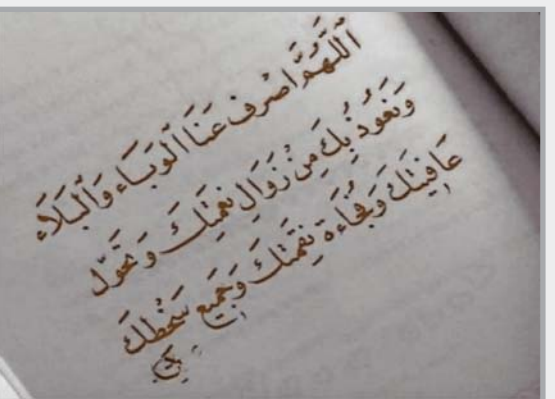 اَللّٰهُمَّ اصْرِف عَنَّا الْوَبَاءَ وَالْبَلَاءَ
وَنَعُوذُ بِكَ مِنْ زَوَالِ نِعْمَتِكَ وَتَحَوُّلِ
عَافِيَتِكَ وَفُجَاءَةِ نِقْمَتِكَ وَجَمِيعِ سَخَطِكَ